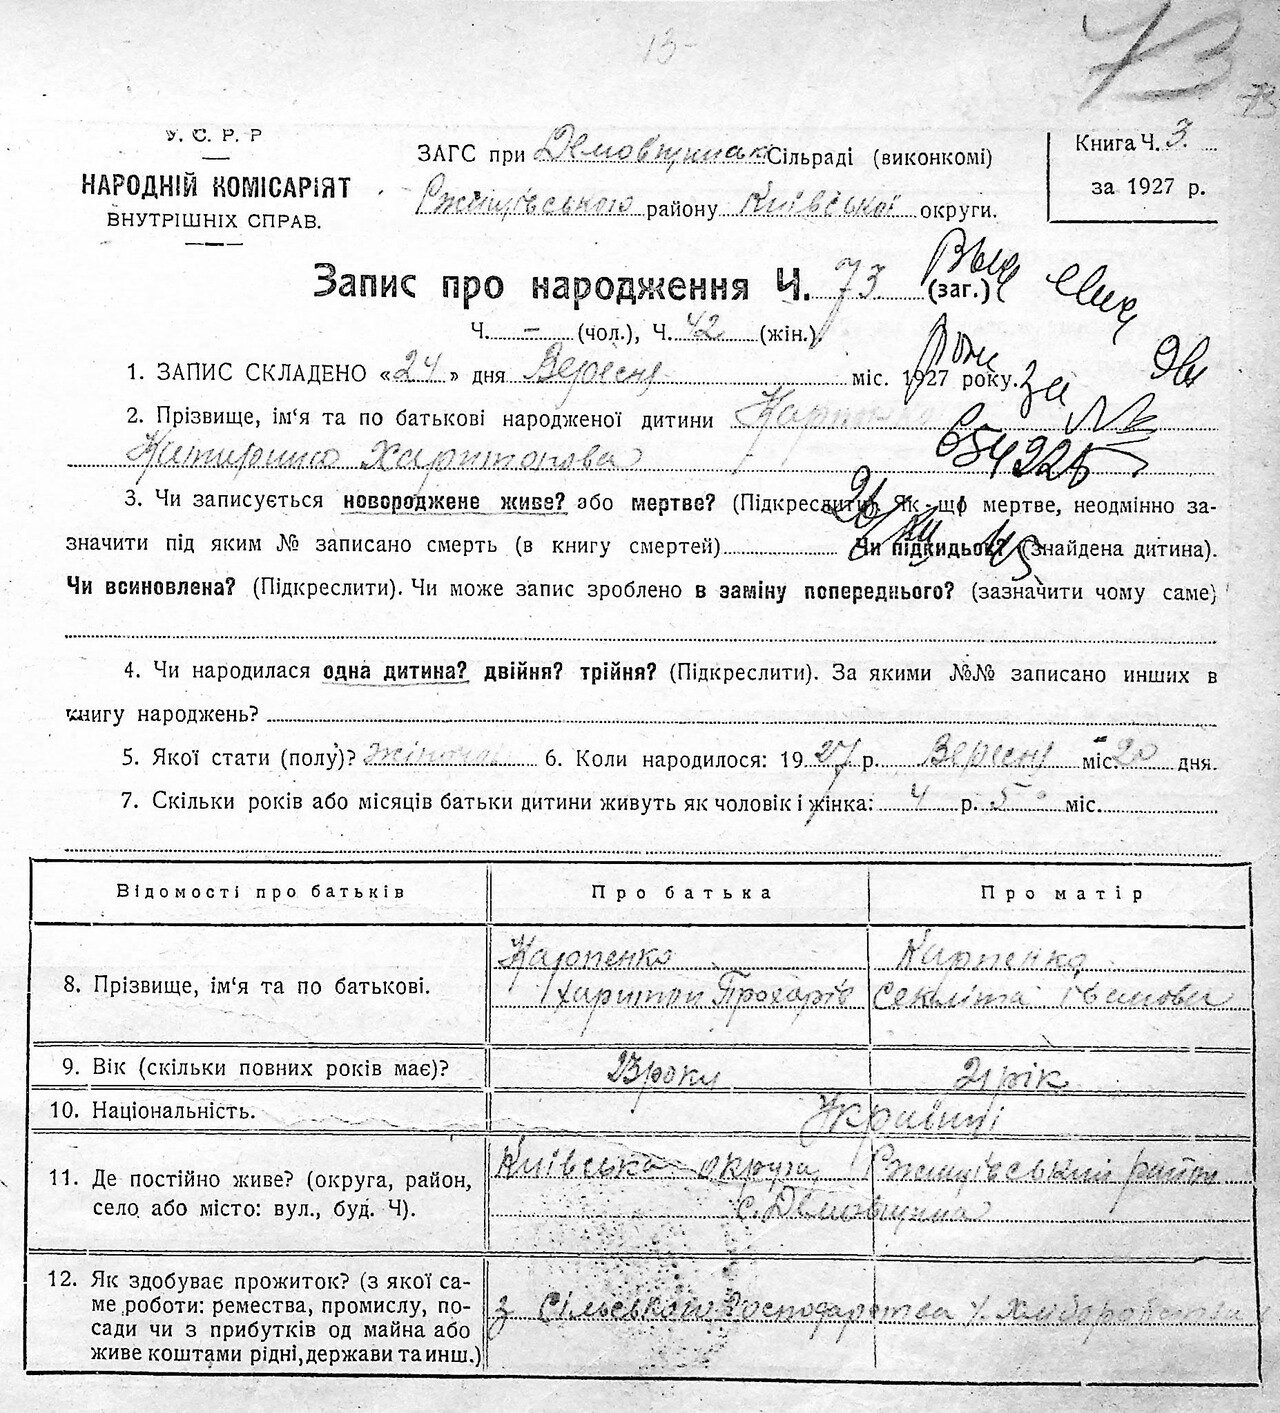 13-
73
73
У. С. Р. Р
НАРОДНІЙ КОМІСАРІЯТ
ВНУТРІШНІХ СПРАВ.
ЗАГС при Демовщинськ Сільраді (виконкомі)
Ржищівського району Київської округи.
Книга Ч. 3.
за 1927 р.
Запис про народження Ч. 73 (заг.)
Ч. – (чол.), Ч. 42 (жін.).
1. ЗАПИС СКЛАДЕНО «24» дня Вересня міс. 1927 року.
2. Прізвище, ім'я та по батькові народженої дитини Карпенко
Катирина Харитонова
за №
654225
3. Чи записується новороджене живе? або мертве? (Підкреслити). Як що мертве, неодмінно за-
значити під яким № записано смерть (в книгу смертей) Чи підкидьок? (знайдена дитина).
26/XII 45
Чи всиновлена? (Підкреслити). Чи може запис зроблено в заміну попереднього? (зазначити чому саме)
4. Чи народилася одна дитина? двійня? трійня? (Підкреслити). За якими №№ записано инших в
книгу народжень?
5. Якої стати (полу)? жіночої 6. Коли народилося: 1927 р. Вересня міс. 20 дня.
7. Скільки років або місяців батьки дитини живуть як чоловік і жінка: 4 р. 5 міс.
Відомості про батьків Про батька Про матір
8. Прізвище, ім'я та по батькові. Карпенко Харитон Прохорів Карпенко Секліта Іванова
9. Вік (скільки повних років має)? 23 роки 21 рік
10. Національність. Українці
11. Де постійно живе? (округа, район, Київська округа, Ржищівський район
село або місто: вул., буд. Ч). с. Демовщина
12. Як здобуває прожиток? (з якої са-
ме роботи: ремества, промислу, по- з Сільського Господарства Хліборобства
сади чи з прибутків од майна або
живе коштами рідні, держави та инш.)